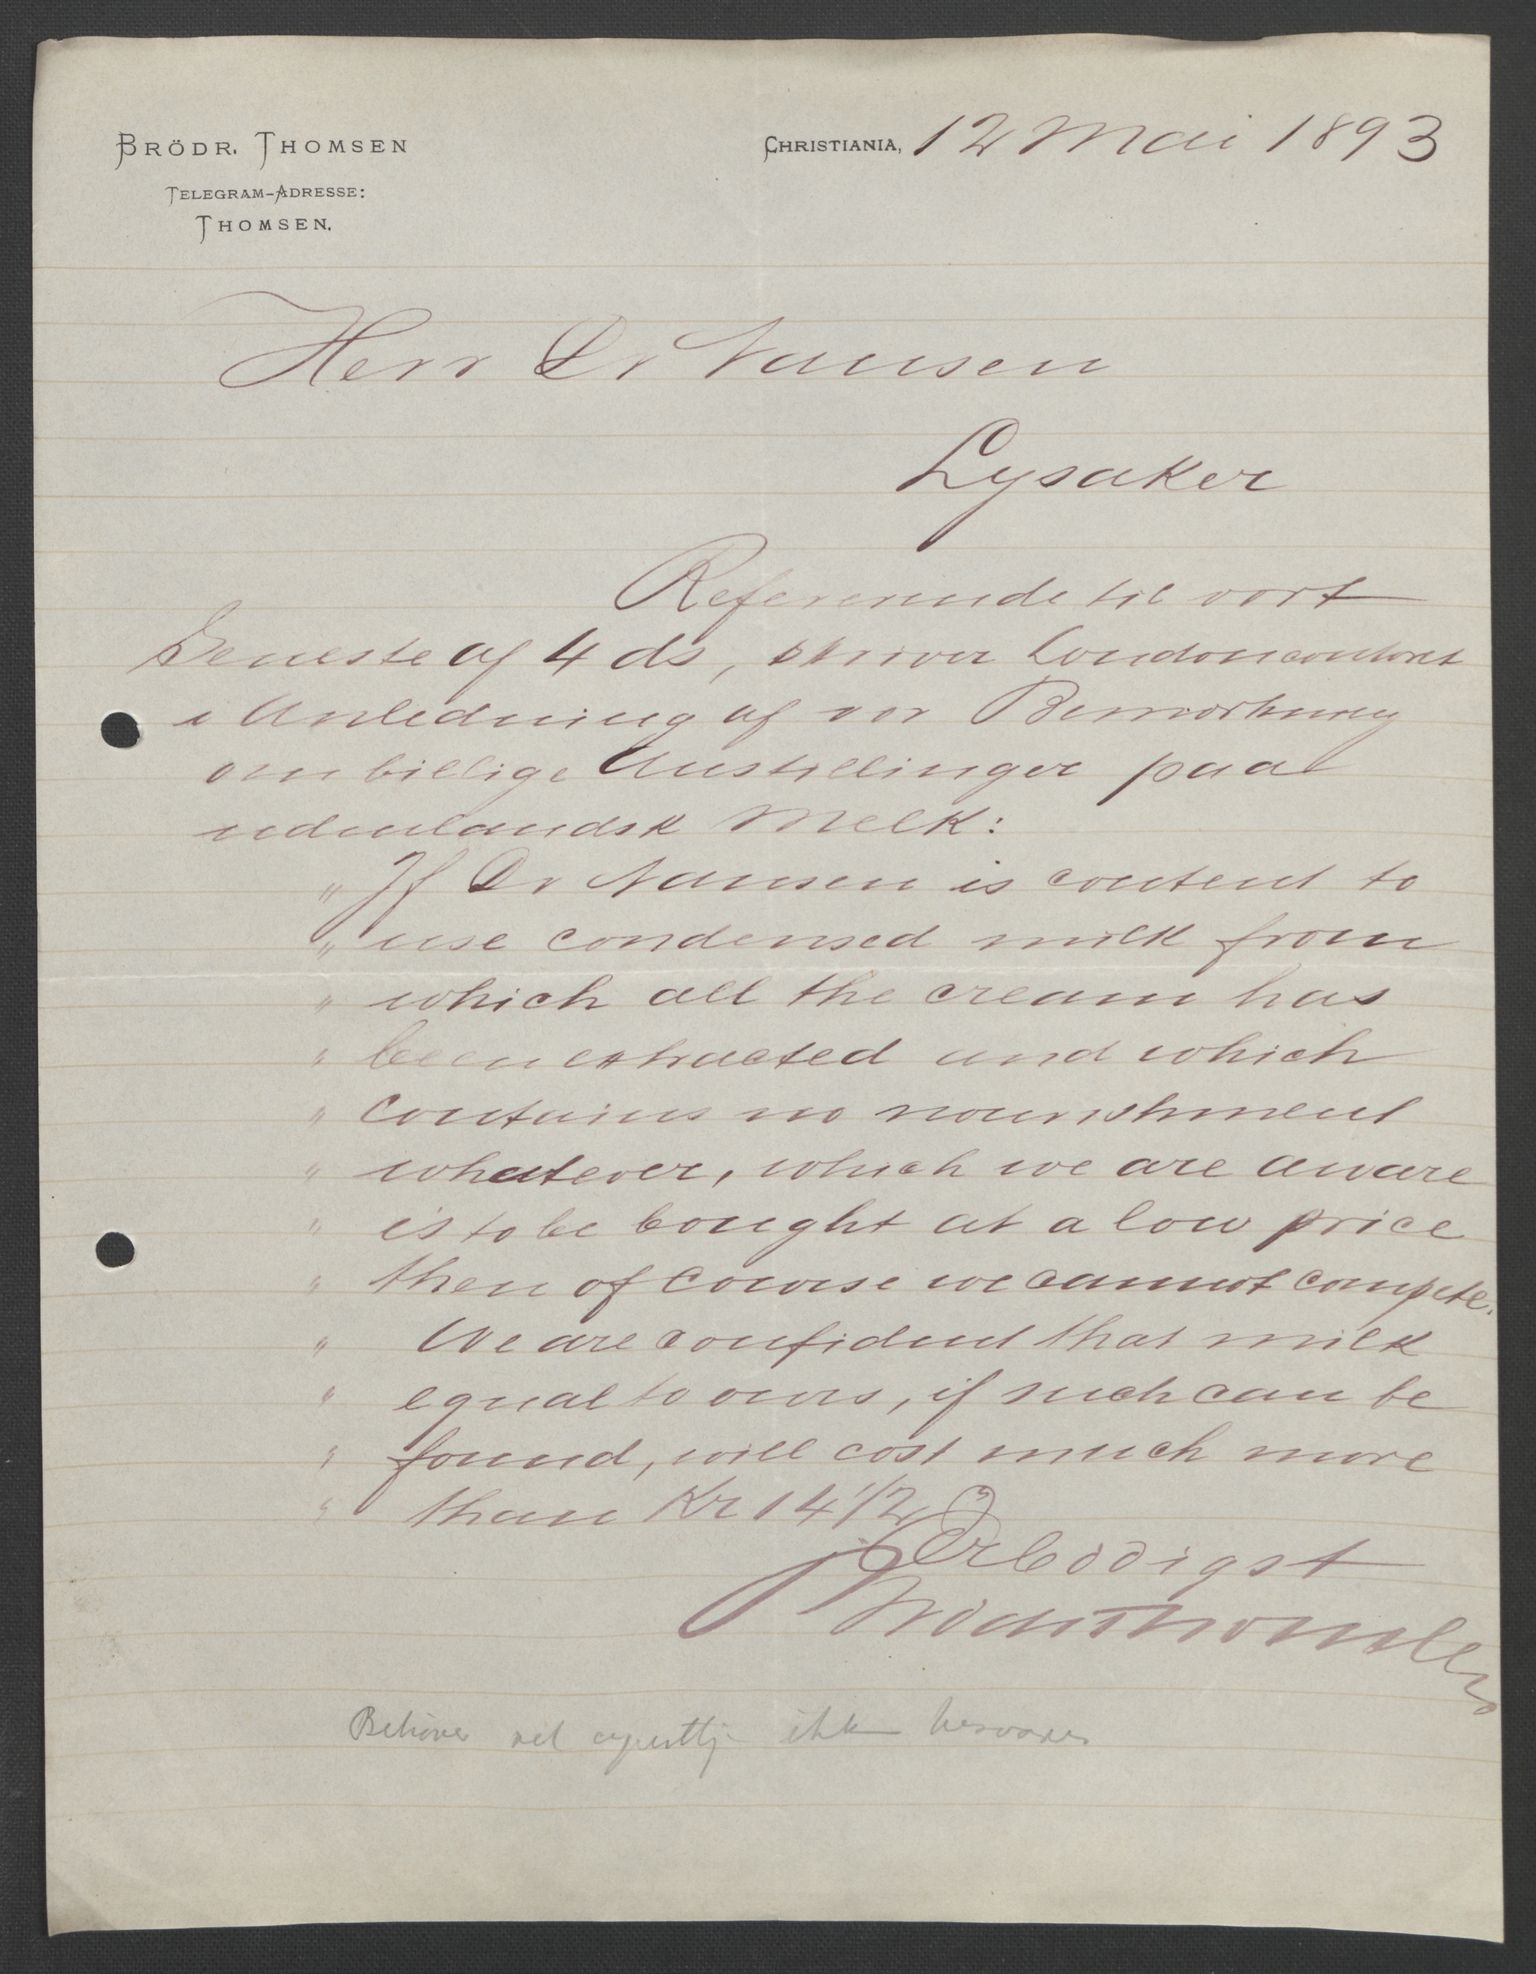 BRÖDR. THOMSEN
TELEGRAM-ADRESSE:
THOMSEN.
CHRISTIANIA, 12 Mai 1893
Herr Dr Nansen
Lysaker
Refererende til vort
Seneste af 4 ds, skriver Londoncontoret
i Anledning af vor Bemærkning
om billige Anstillinger paa
udenlandsk Melk:
„ If Dr Nansen is content to
„ use condensed milk from
„ which all the cream has
„ been extracted and which
„ contains no nourishment
„ whatever, which we are aware
„ is to be bought at a low price
„ then of course we cannot compete.
„ We are confident that milk
„ equal to ours, if such can be
„ found, will cost much more
„ than Kr 14 1/2"
Ærbödigst
Brödr Thomsen
Behöver vel ikke besvares